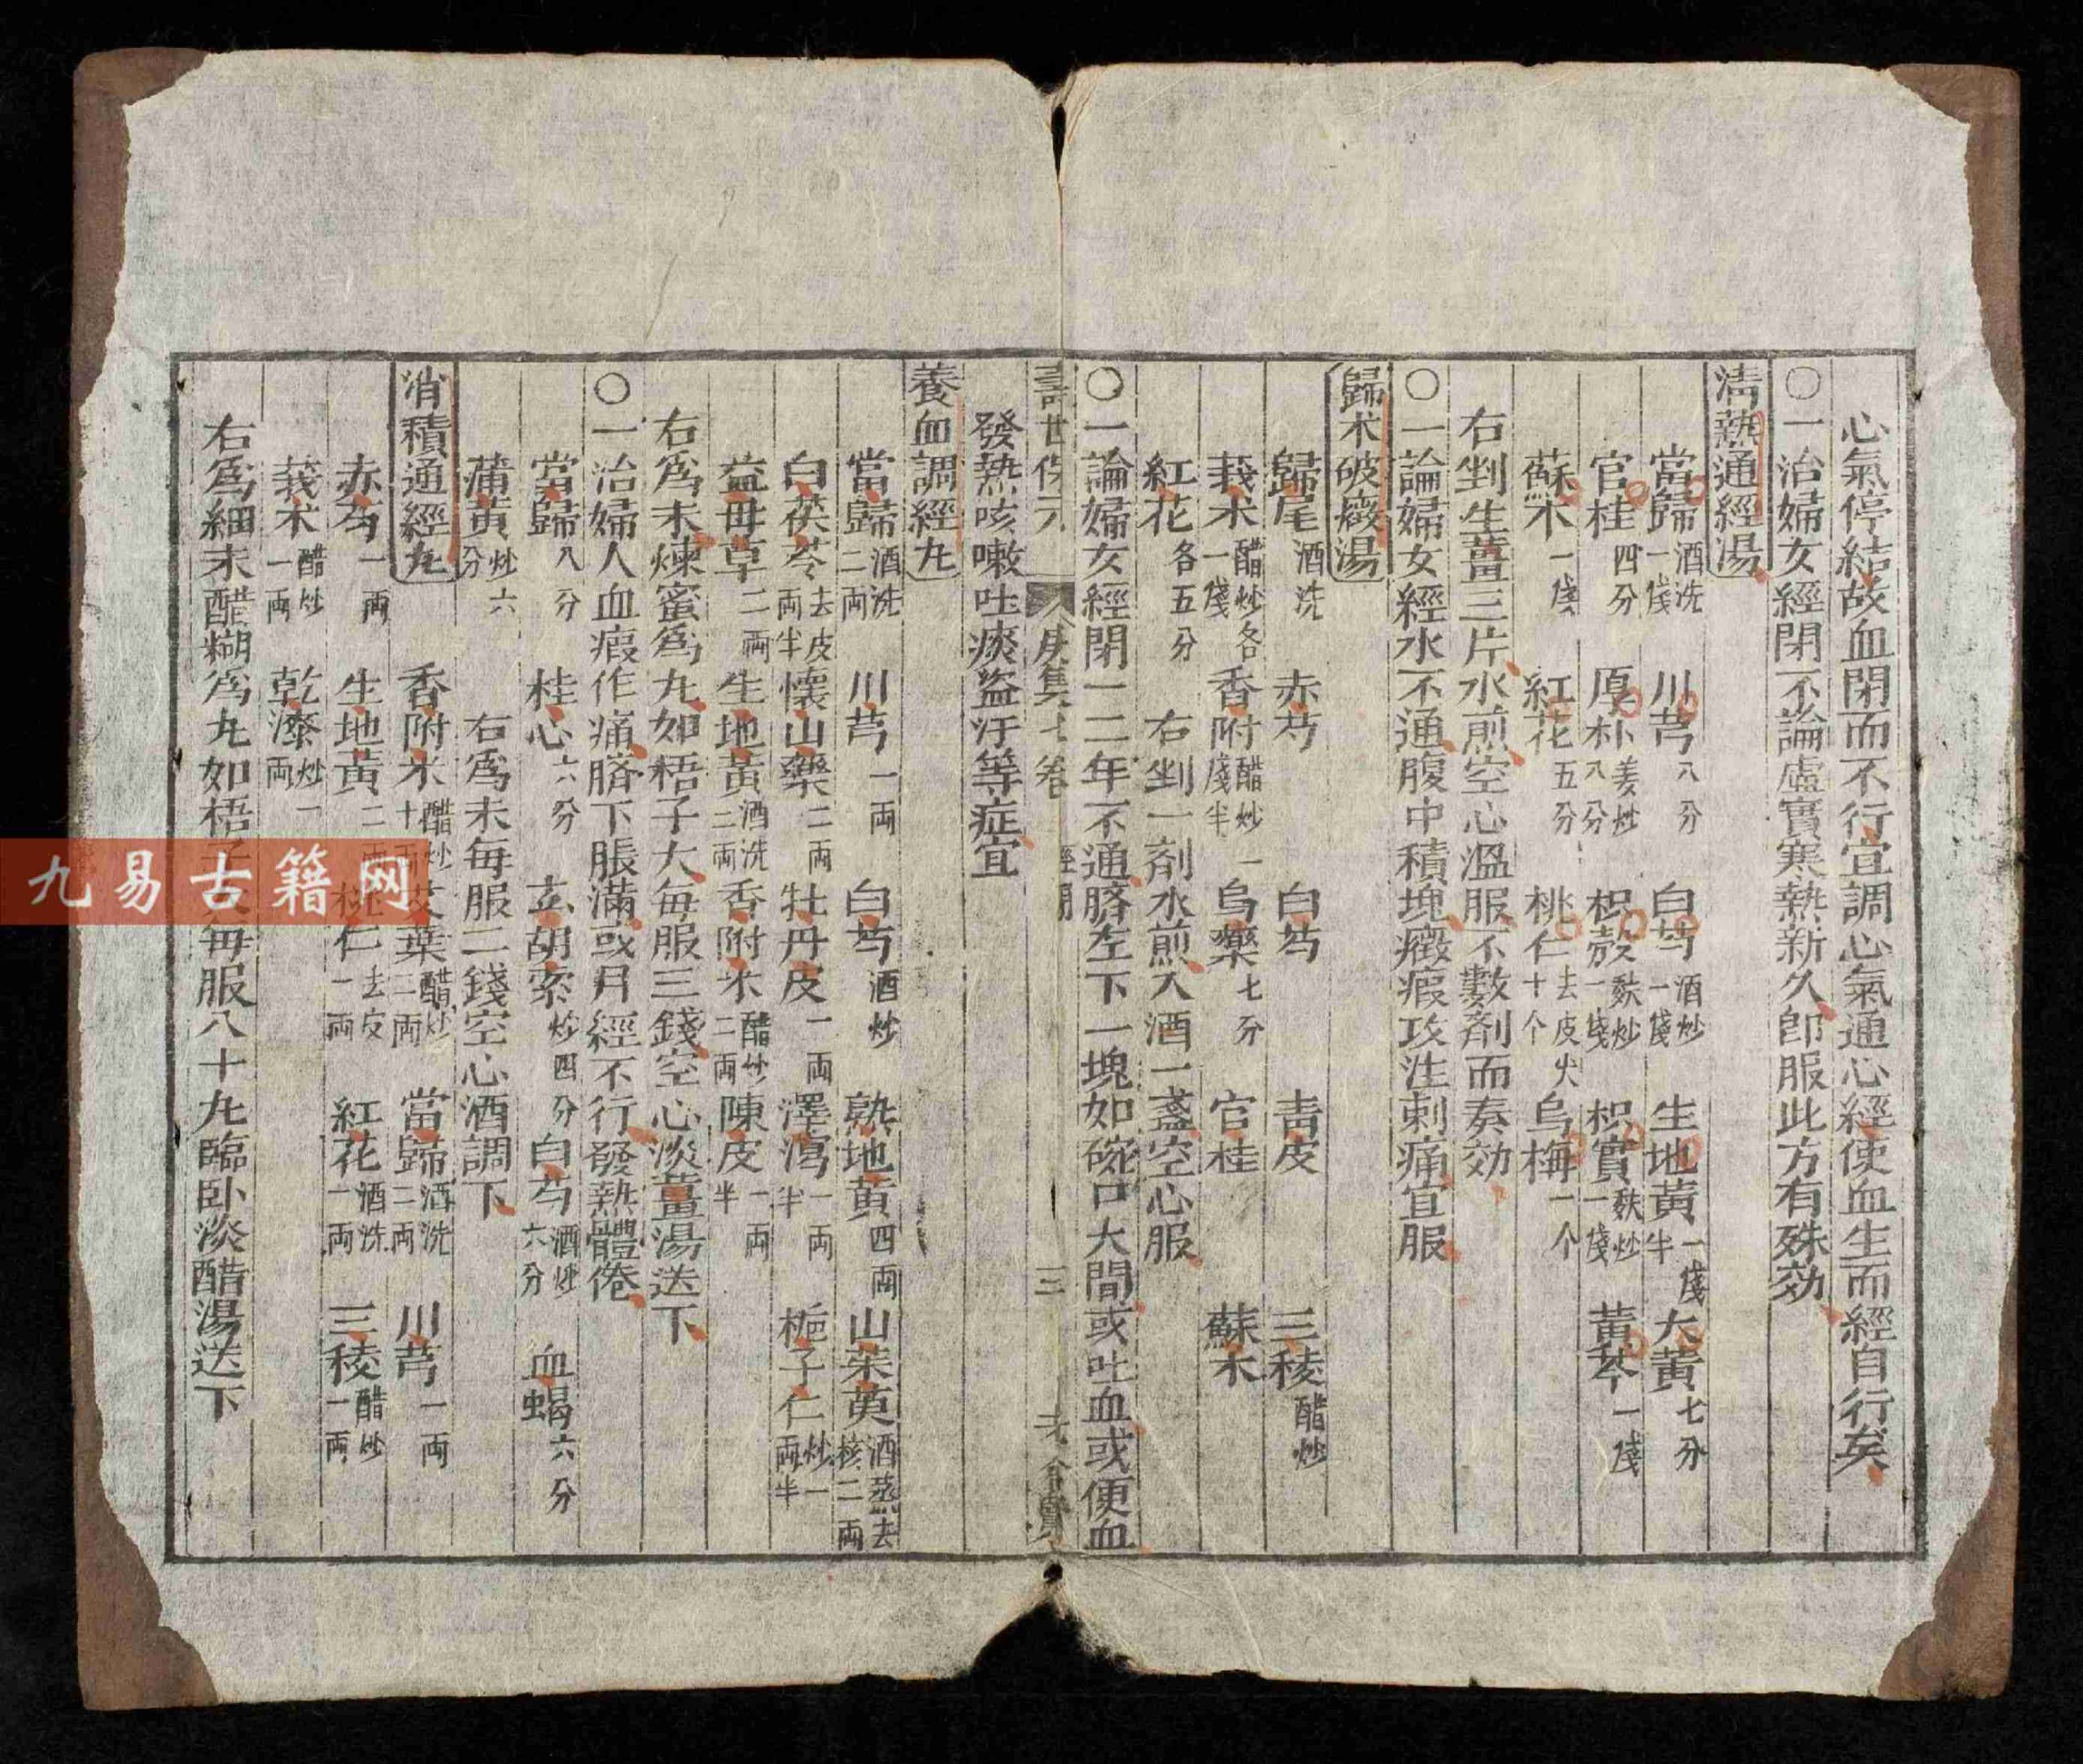 心氣停結故血閉而不行宜調心氣通心經使血生而經自行矣
〇一治婦女經閉不論虛實寒熱新久卽服此方有殊効
淸熱通經湯
當歸酒洗一戔 川芎八分 白芍酒炒一戔 生地黃一戔半 大黃七分
官桂四分 厚朴姜炒八分 枳殼麩炒一戔 枳實麩炒一戔 黃芩一戔
蘇木一戔 紅花五分 桃仁去皮尖十个 烏梅一个
右剉生薑三片水煎空心溫服不數劑而奏効
〇一論婦女經水不通腹中積塊癥瘕攻注刺痛宜服
歸朮破癥湯
歸尾酒洗 赤芍 白芍 靑皮 三稜醋炒
莪朮醋炒各一戔 香附醋炒一戔半 烏藥七分 官桂 蘇木
紅花各五分 右剉一劑水煎入酒一盞空心服
〇一論婦女經閉一二年不通臍左下一塊如碗口大間或吐血或便血
壽世保元 庚集七卷 經閉 三
發熱咳嗽吐痰盜汗等症宜
養血調經丸
當歸酒洗二兩 川芎一兩 白芍酒炒 熟地黃四兩 山茱萸酒蒸去核二兩
白茯苓去皮兩半 懷山藥二兩 牡丹皮一兩 澤瀉一兩半 梔子仁炒一兩半
益毋草二兩 生地黃酒洗二兩 香附米醋炒二兩 陳皮一兩半
右爲末煉蜜爲丸如梧子大每服三錢空心淡薑湯送下
〇一治婦人血瘕作痛臍下脹滿或月經不行發熱體倦
當歸八分 桂心六分 玄胡索炒四分 白芍酒炒六分 血蝎六分
蒲黃炒六分 右爲末每服二錢空心酒調下
消積通經丸 香附米醋炒十兩 艾葉醋炒二兩 當歸酒洗二兩 川芎一兩
赤芍一兩 生地黃二兩 桃仁去皮一兩 紅花酒洗一兩 三稜醋炒一兩
莪朮醋炒一兩 乾漆炒一兩
右爲細末醋糊爲丸如梧子大每服八十丸臨卧淡醋湯送下
九易古籍网